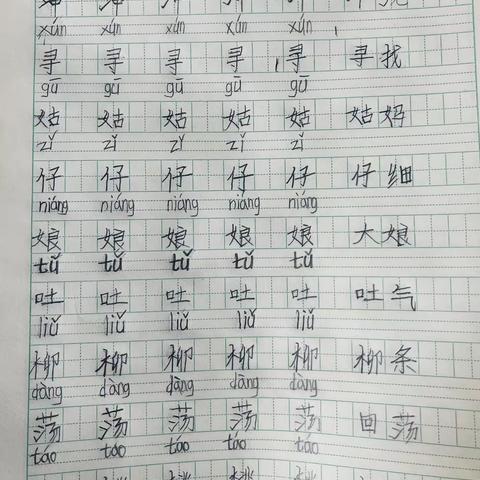 xún xún xún xún xún
寻 寻 寻 寻 寻 寻找
gū gū gū gū gū
姑 姑 姑 姑 姑 姑妈
zǐ zǐ zǐ zǐ zǐ
仔 仔 仔 仔 仔 仔细
niáng niáng niáng niáng niáng
娘 娘 娘 娘 娘 大娘
tǔ tǔ tǔ tǔ tǔ
吐 吐 吐 吐 吐 吐气
liǔ liǔ liǔ liǔ liǔ
柳 柳 柳 柳 柳 柳条
dàng dàng dàng dàng dàng
荡 荡 荡 荡 荡 回荡
táo táo táo táo táo